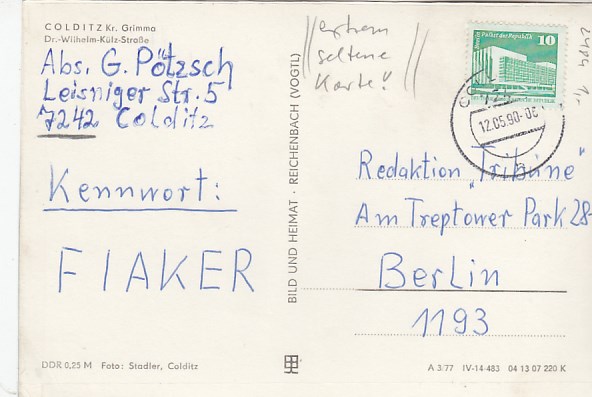 COLDITZ Kr. Grimma
Dr.-Wilhelm-Külz-Straße
Abs. G. Pötzsch
Leisniger Str. 5
7242 Colditz
Kennwort:
FIAKER
DDR 0,25 M Foto: Stadler, Colditz
BILD UND HEIMAT · REICHENBACH (VOGTL)
extrem
seltene
Karte!
10
Palast der Republik
12.05.90-
Redaktion „Tribüne"
Am Treptower Park 28-
Berlin
1193
A 3/77 IV-14-483 04 13 07 220 K